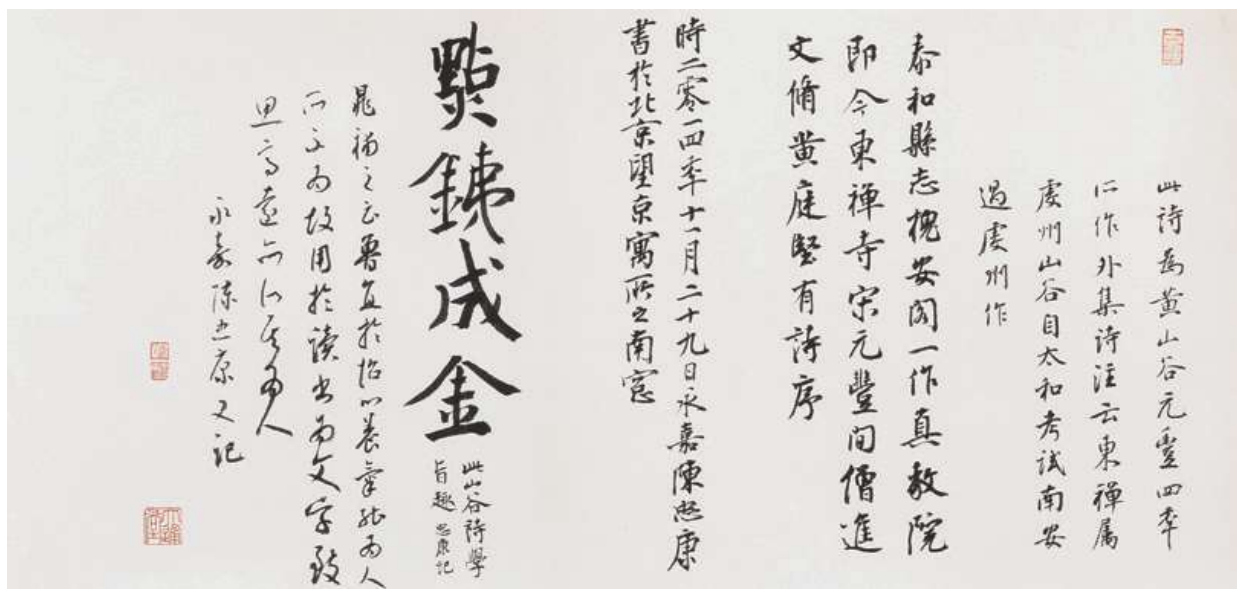 此詩為黄山谷元豐四年
所作外集詩注云東禪属
虔州山谷自太和考试南安
過虔州作
泰和縣志槐安阁一作真教院
即今東禪寺宋元豐间僧進
文脩黄庭堅有詩序
時二零一四年十一月二十九日永嘉陳忠康
書於北京望京寓所之南窓
點銕成金
此山谷詩學
旨趣 忠康记
晁補之云魯直於治心養氣能为人
所不为故用於讀书为文字致
思高遠亦似其为人
永嘉陳忠康又記